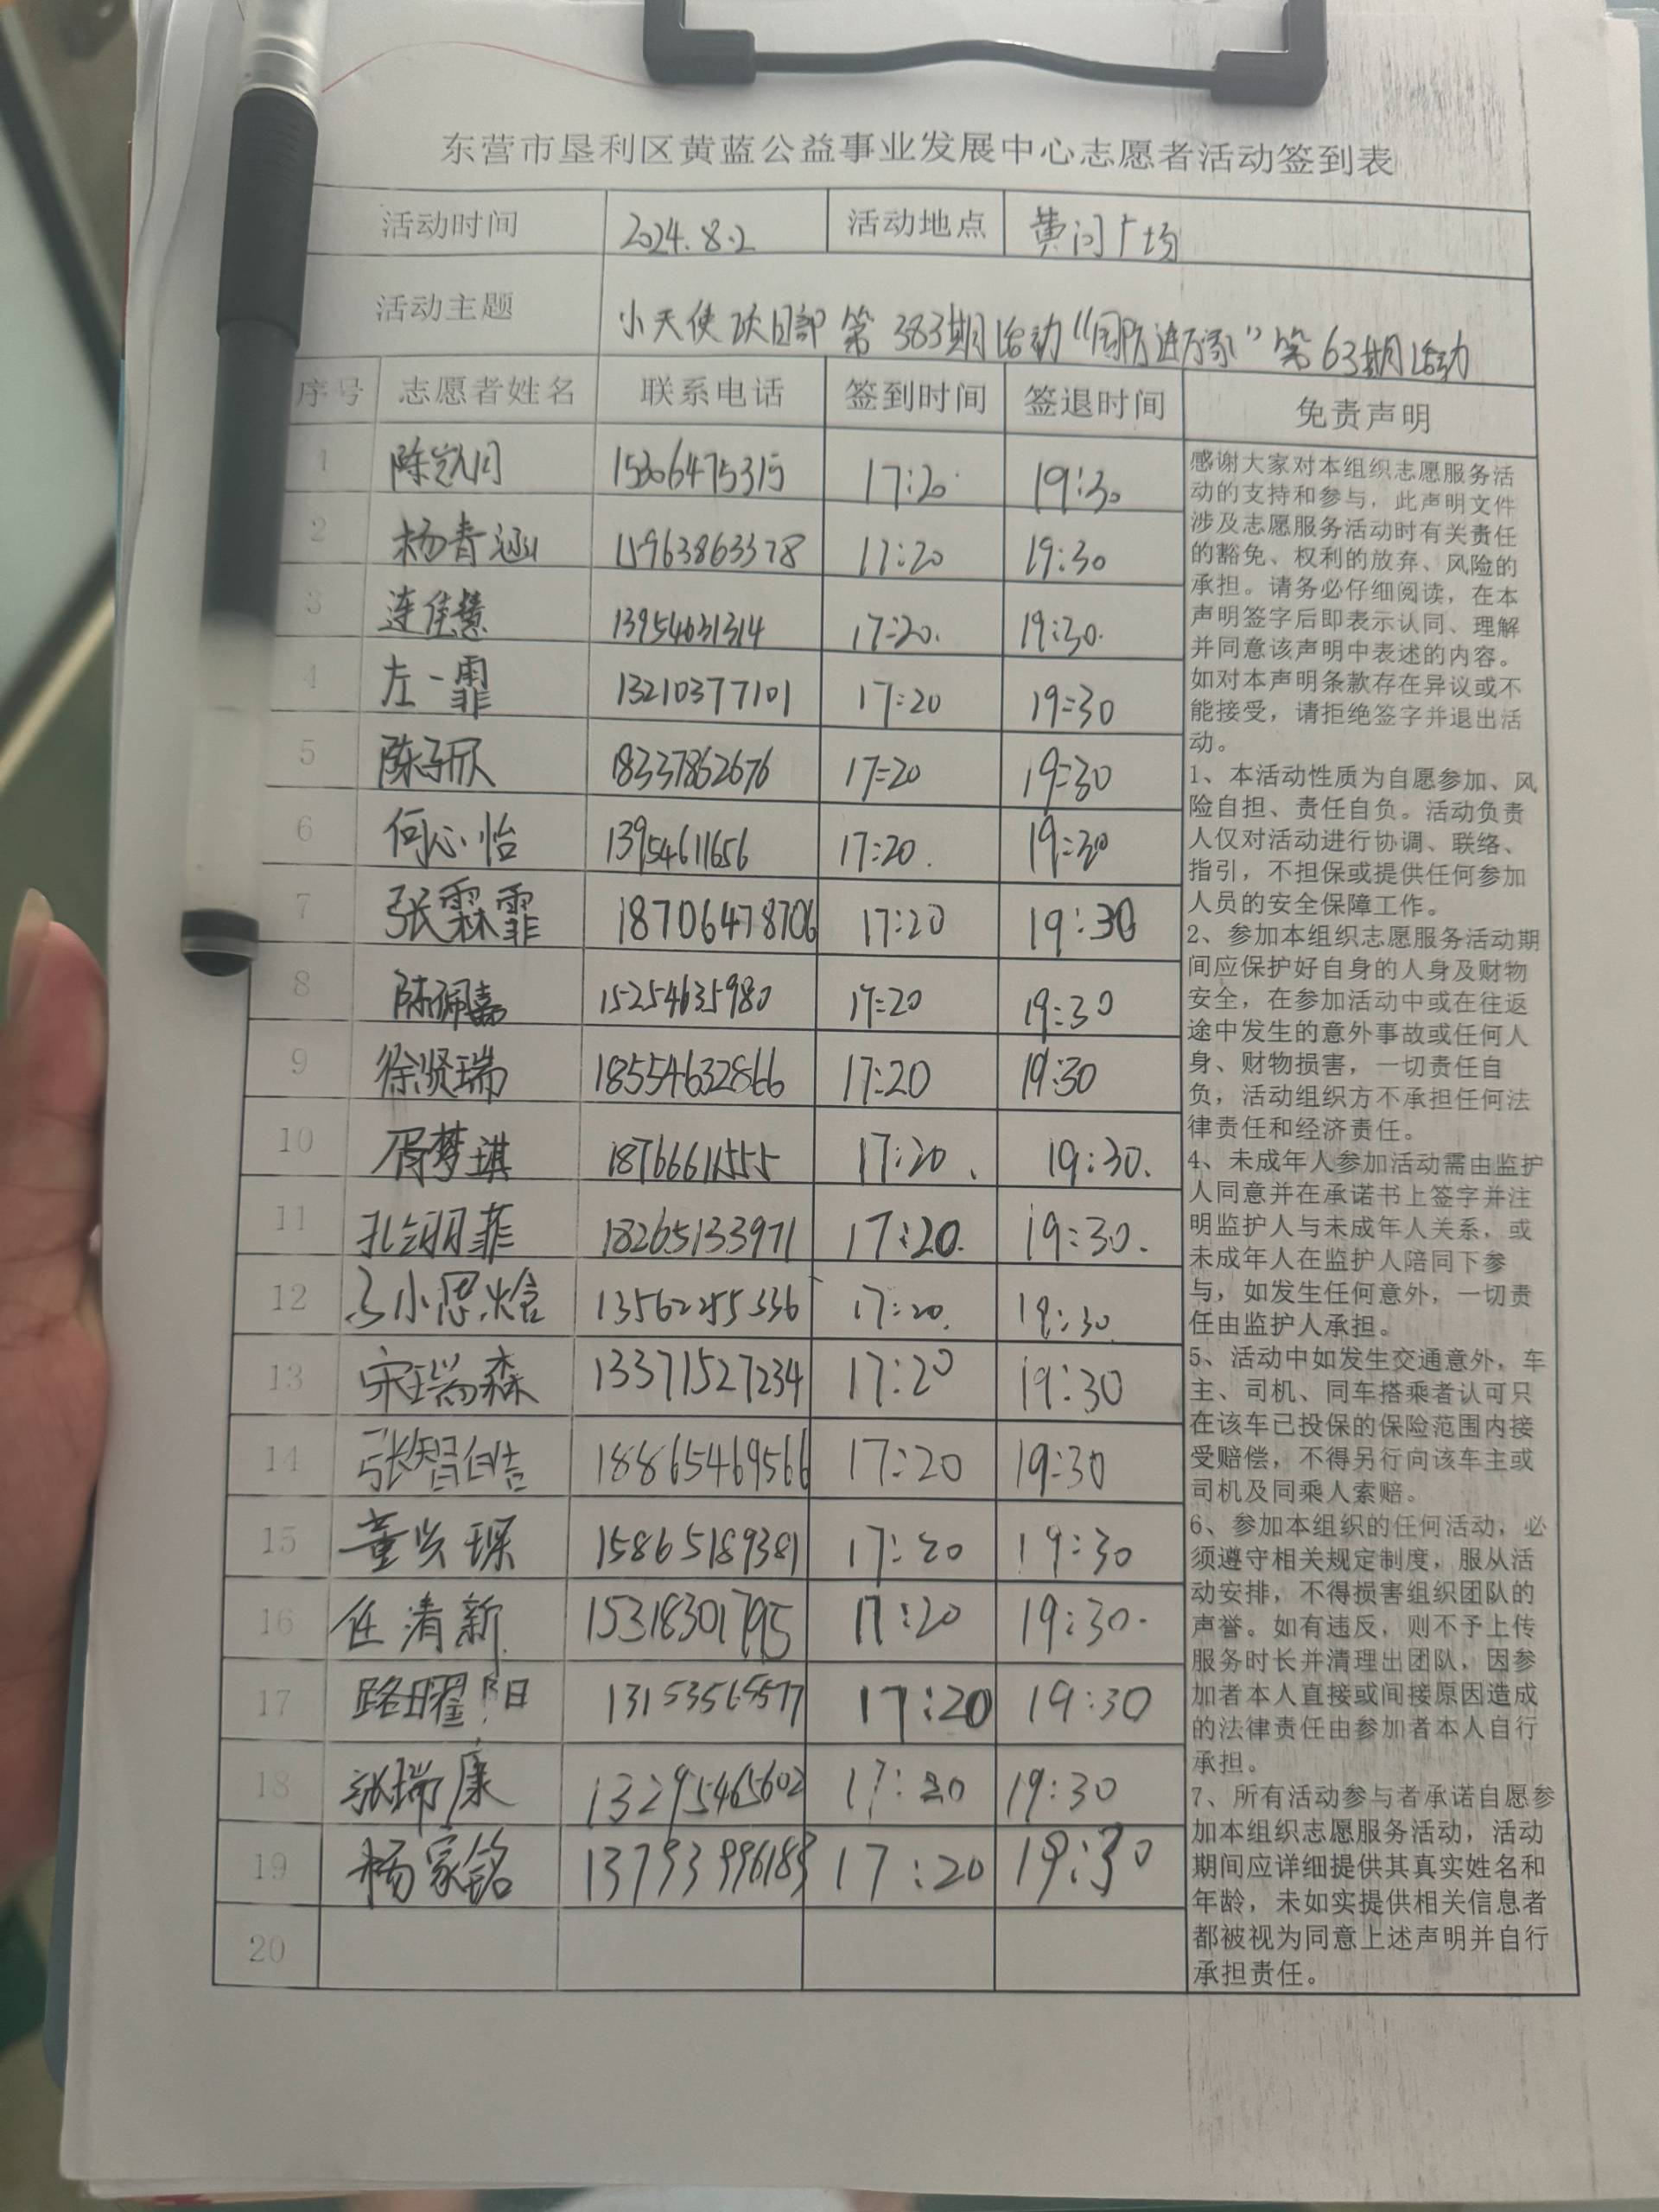 东营市垦利区黄蓝公益事业发展中心志愿者活动签到表
活动时间 2024.8.2 活动地点 黄河广场
活动主题 小天使 第383期活动“国防进万家”第63期活动
序号 志愿者姓名 联系电话 签到时间 签退时间 免责声明
1 陈凯同 15306475315 17:20 19:30
2 杨青涵 15963863378 17:20 19:30
3 连佳慧 13954631314 17:20 19:30
4 左一霏 13210377101 17:20 19:30
5 陈子欣 18337862676 17:20 19:30
6 何心怡 13954611656 17:20 19:30
7 张霖霏 18706478706 17:20 19:30
8 陈佩嘉 15254635980 17:20 19:30
9 徐贤瑞 18554632866 17:20 19:30
10 胥梦琪 18766611555 17:20 19:30
11 菲 18265133971 17:20 19:30
12 17:20 19:30
13 宋瑞森 13371527234 17:20 19:30
14 张智皓 18865469566 17:20 19:30
15 董兴琛 15865189381 17:20 19:30
16 任清新 15318301795 17:20 19:30
17 路曜阳 13153565577 17:20 19:30
18 张瑞康 13295465602 17:20 19:30
19 杨家铭 13793996189 17:20 19:30
20
感谢大家对本组织志愿服务活
动的支持和参与，此声明文件
涉及志愿服务活动时有关责任
的豁免、权利的放弃、风险的
承担。请务必仔细阅读，在本
声明签字后即表示认同、理解
并同意该声明中表述的内容。
如对本声明条款存在异议或不
能接受，请拒绝签字并退出活
动。
1、本活动性质为自愿参加、风
险自担、责任自负。活动负责
人仅对活动进行协调、联络、
指引，不担保或提供任何参加
人员的安全保障工作。
2、参加本组织志愿服务活动期
间应保护好自身的人身及财物
安全，在参加活动中或在往返
途中发生的意外事故或任何人
身、财物损害，一切责任自
负，活动组织方不承担任何法
律责任和经济责任。
4、未成年人参加活动需由监护
人同意并在承诺书上签字并注
明监护人与未成年人关系，或
未成年人在监护人陪同下参
与，如发生任何意外，一切责
任由监护人承担。
5、活动中如发生交通意外，车
主、司机、同车搭乘者认可只
在该车已投保的保险范围内接
受赔偿，不得另行向该车主或
司机及同乘人索赔。
6、参加本组织的任何活动，必
须遵守相关规定制度，服从活
动安排，不得损害组织团队的
声誉。如有违反，则不予上传
服务时长并清理出团队，因参
加者本人直接或间接原因造成
的法律责任由参加者本人自行
承担。
7、所有活动参与者承诺自愿参
加本组织志愿服务活动，活动
期间应详细提供其真实姓名和
年龄，未如实提供相关信息者
都被视为同意上述声明并自行
承担责任。